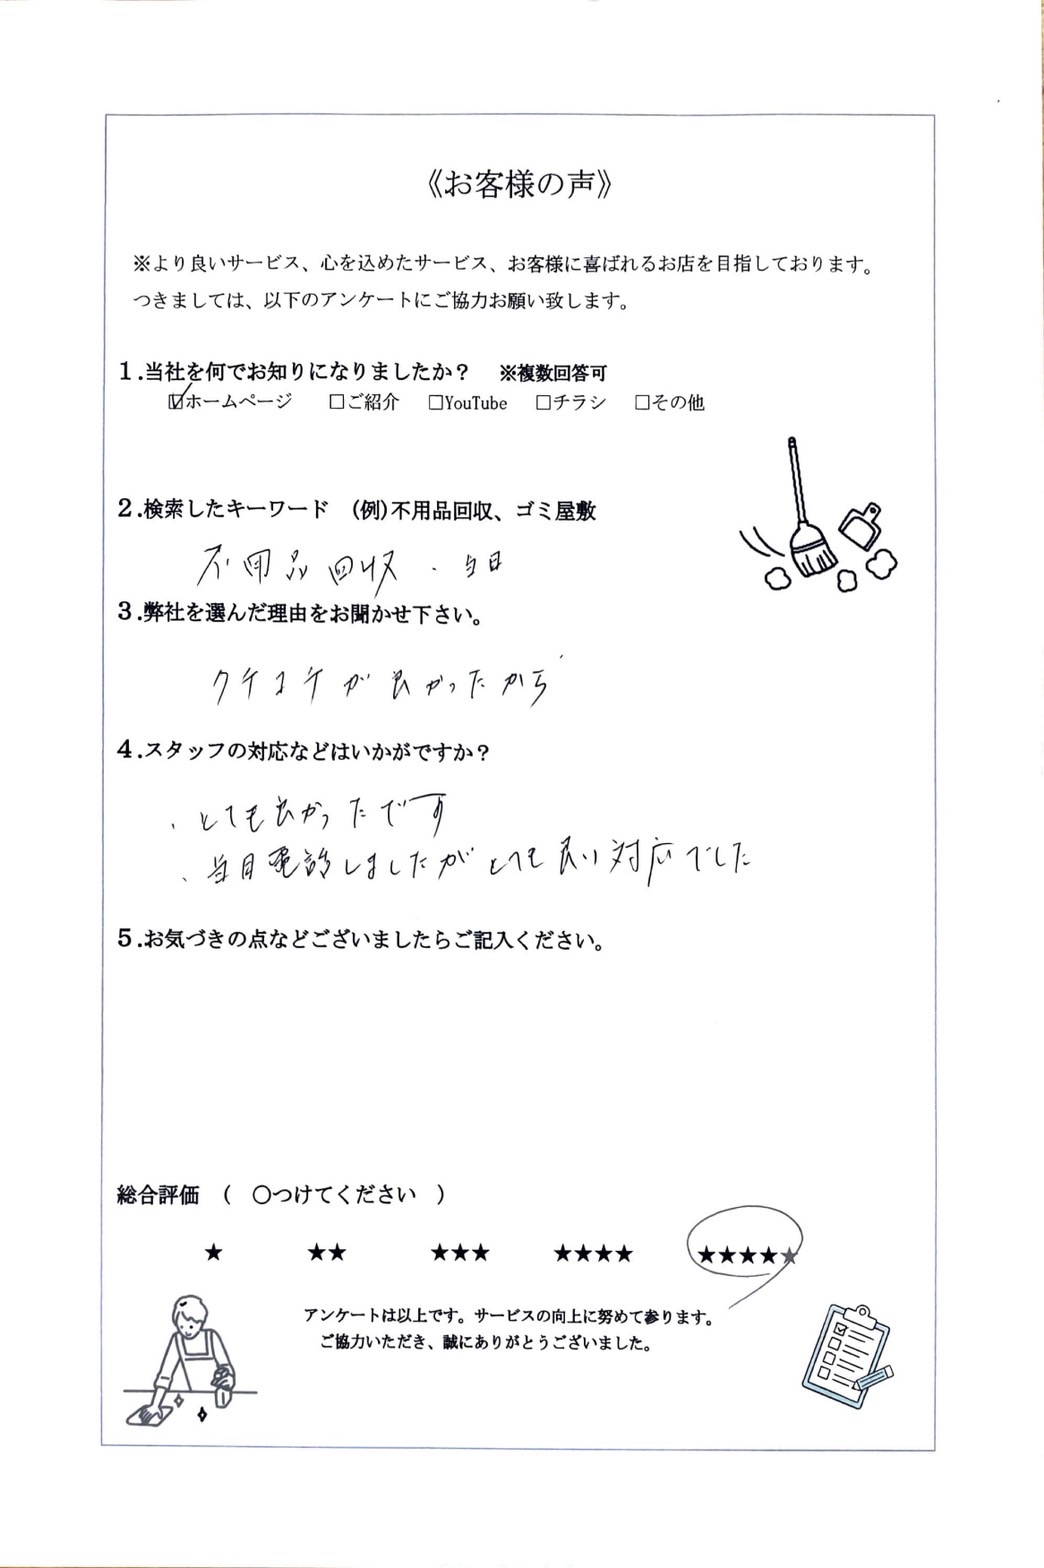 《お客様の声》
※より良いサービス、心を込めたサービス、お客様に喜ばれるお店を目指しております。
つきましては、以下のアンケートにご協力お願い致します。
1.当社を何でお知りになりましたか？　※複数回答可
☑ホームページ　□ご紹介　□YouTube　□チラシ　□その他
2.検索したキーワード　(例)不用品回収、ゴミ屋敷
不用品回収 . 当日
3.弊社を選んだ理由をお聞かせ下さい。
クチコチが良かったから
4.スタッフの対応などはいかがですか？
、とても良かったです
、当日電話しましたがとても良い対応でした
5.お気づきの点などございましたらご記入ください。
総合評価　(　〇つけてください　)
★　★★　★★★　★★★★　★★★★★
アンケートは以上です。サービスの向上に努めて参ります。
ご協力いただき、誠にありがとうございました。